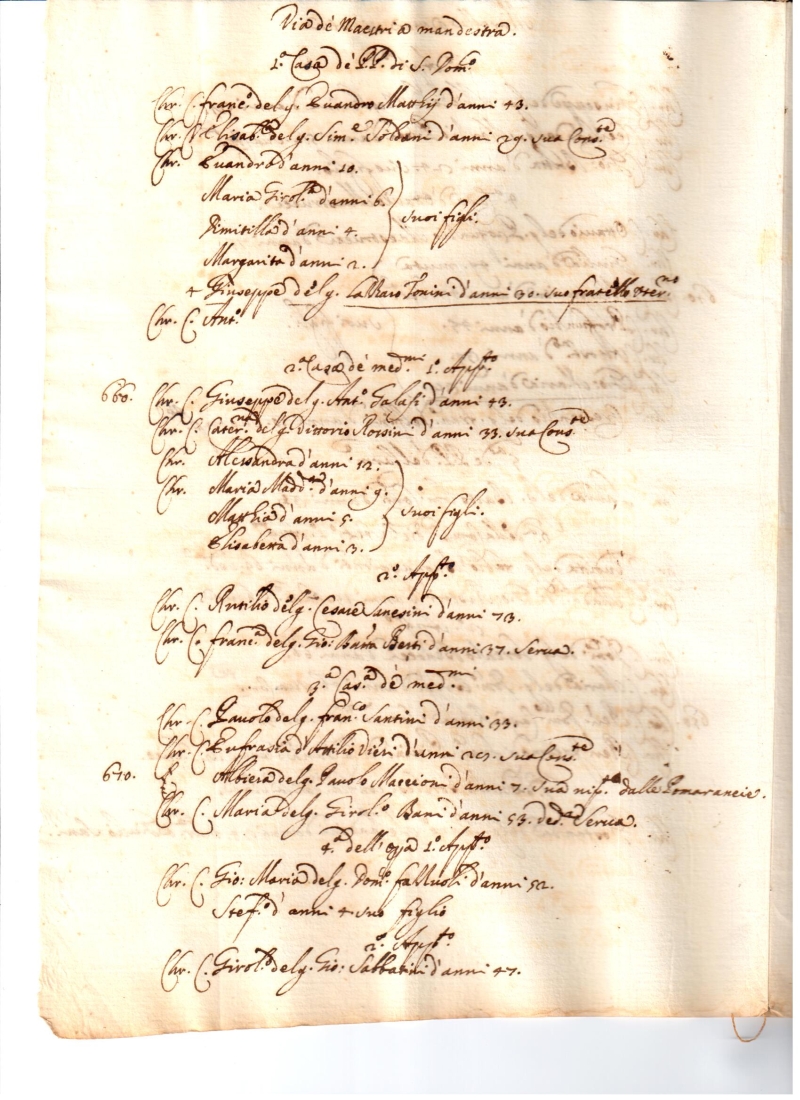 Via de Maestri a man destra.
1.ª Casa de PP. di S. Dom.º
Chr. C. Franc.º del q. Evandro Matthij d'anni 43.
Chr. C. Elisab.ª del q. Sim.e Soldani d'anni 29. sua Cons.te
Chr. Evandro d'anni 10.
Maria Girol.ª d'anni 6.
Dimitilla d'anni 4. suoi figli.
Margarita d'anni 2.
+ Giuseppe del q. Lazzaro Tonini d'anni 30. suo fratello uter.º
Chr. C. Ant.º
2.ª Casa de med.mi 1.º App.to
660. Chr. C. Giuseppe del q. Ant.º Galasi d'anni 43.
Chr. C. Cater.na del q. Vittorio Rossini d'anni 33. sua Cons.te
Chr. Alessandra d'anni 12.
Chr. Maria Madd.na d'anni 9. suoi figli.
Matthia d'anni 5.
Elisabetta d'anni 3.
2.º App.to
Chr. C. Rutilio del q. Cesare Sanesini d'anni 73.
Chr. C. Franc.ª del q. Gio: Batta Berti d'anni 37. Serva.
3.ª Cas.ª de med.mi
Chr. C. Pavolo del q. Fran.co Santini d'anni 33.
Chr. C. Eufrasia d'Attilio Vieri d'anni 29. sua Cons.te
670. Albiera del q. Pavolo Maccioni d'anni 7. sua nip.te dalle Pomarancie.
Chr. C. Maria del q. Girol.º Bani d'anni 53. ded.ª Serva.
4.ª dell' opa 1.º App.to
Chr. C. Gio: Maria del q. Dom.º Fazzuoli d'anni 52.
Stef.º d'anni 4. suo figlio
2.º App.to
Chr. C. Girol.º del q. Gio: Sabbatini d'anni 47.